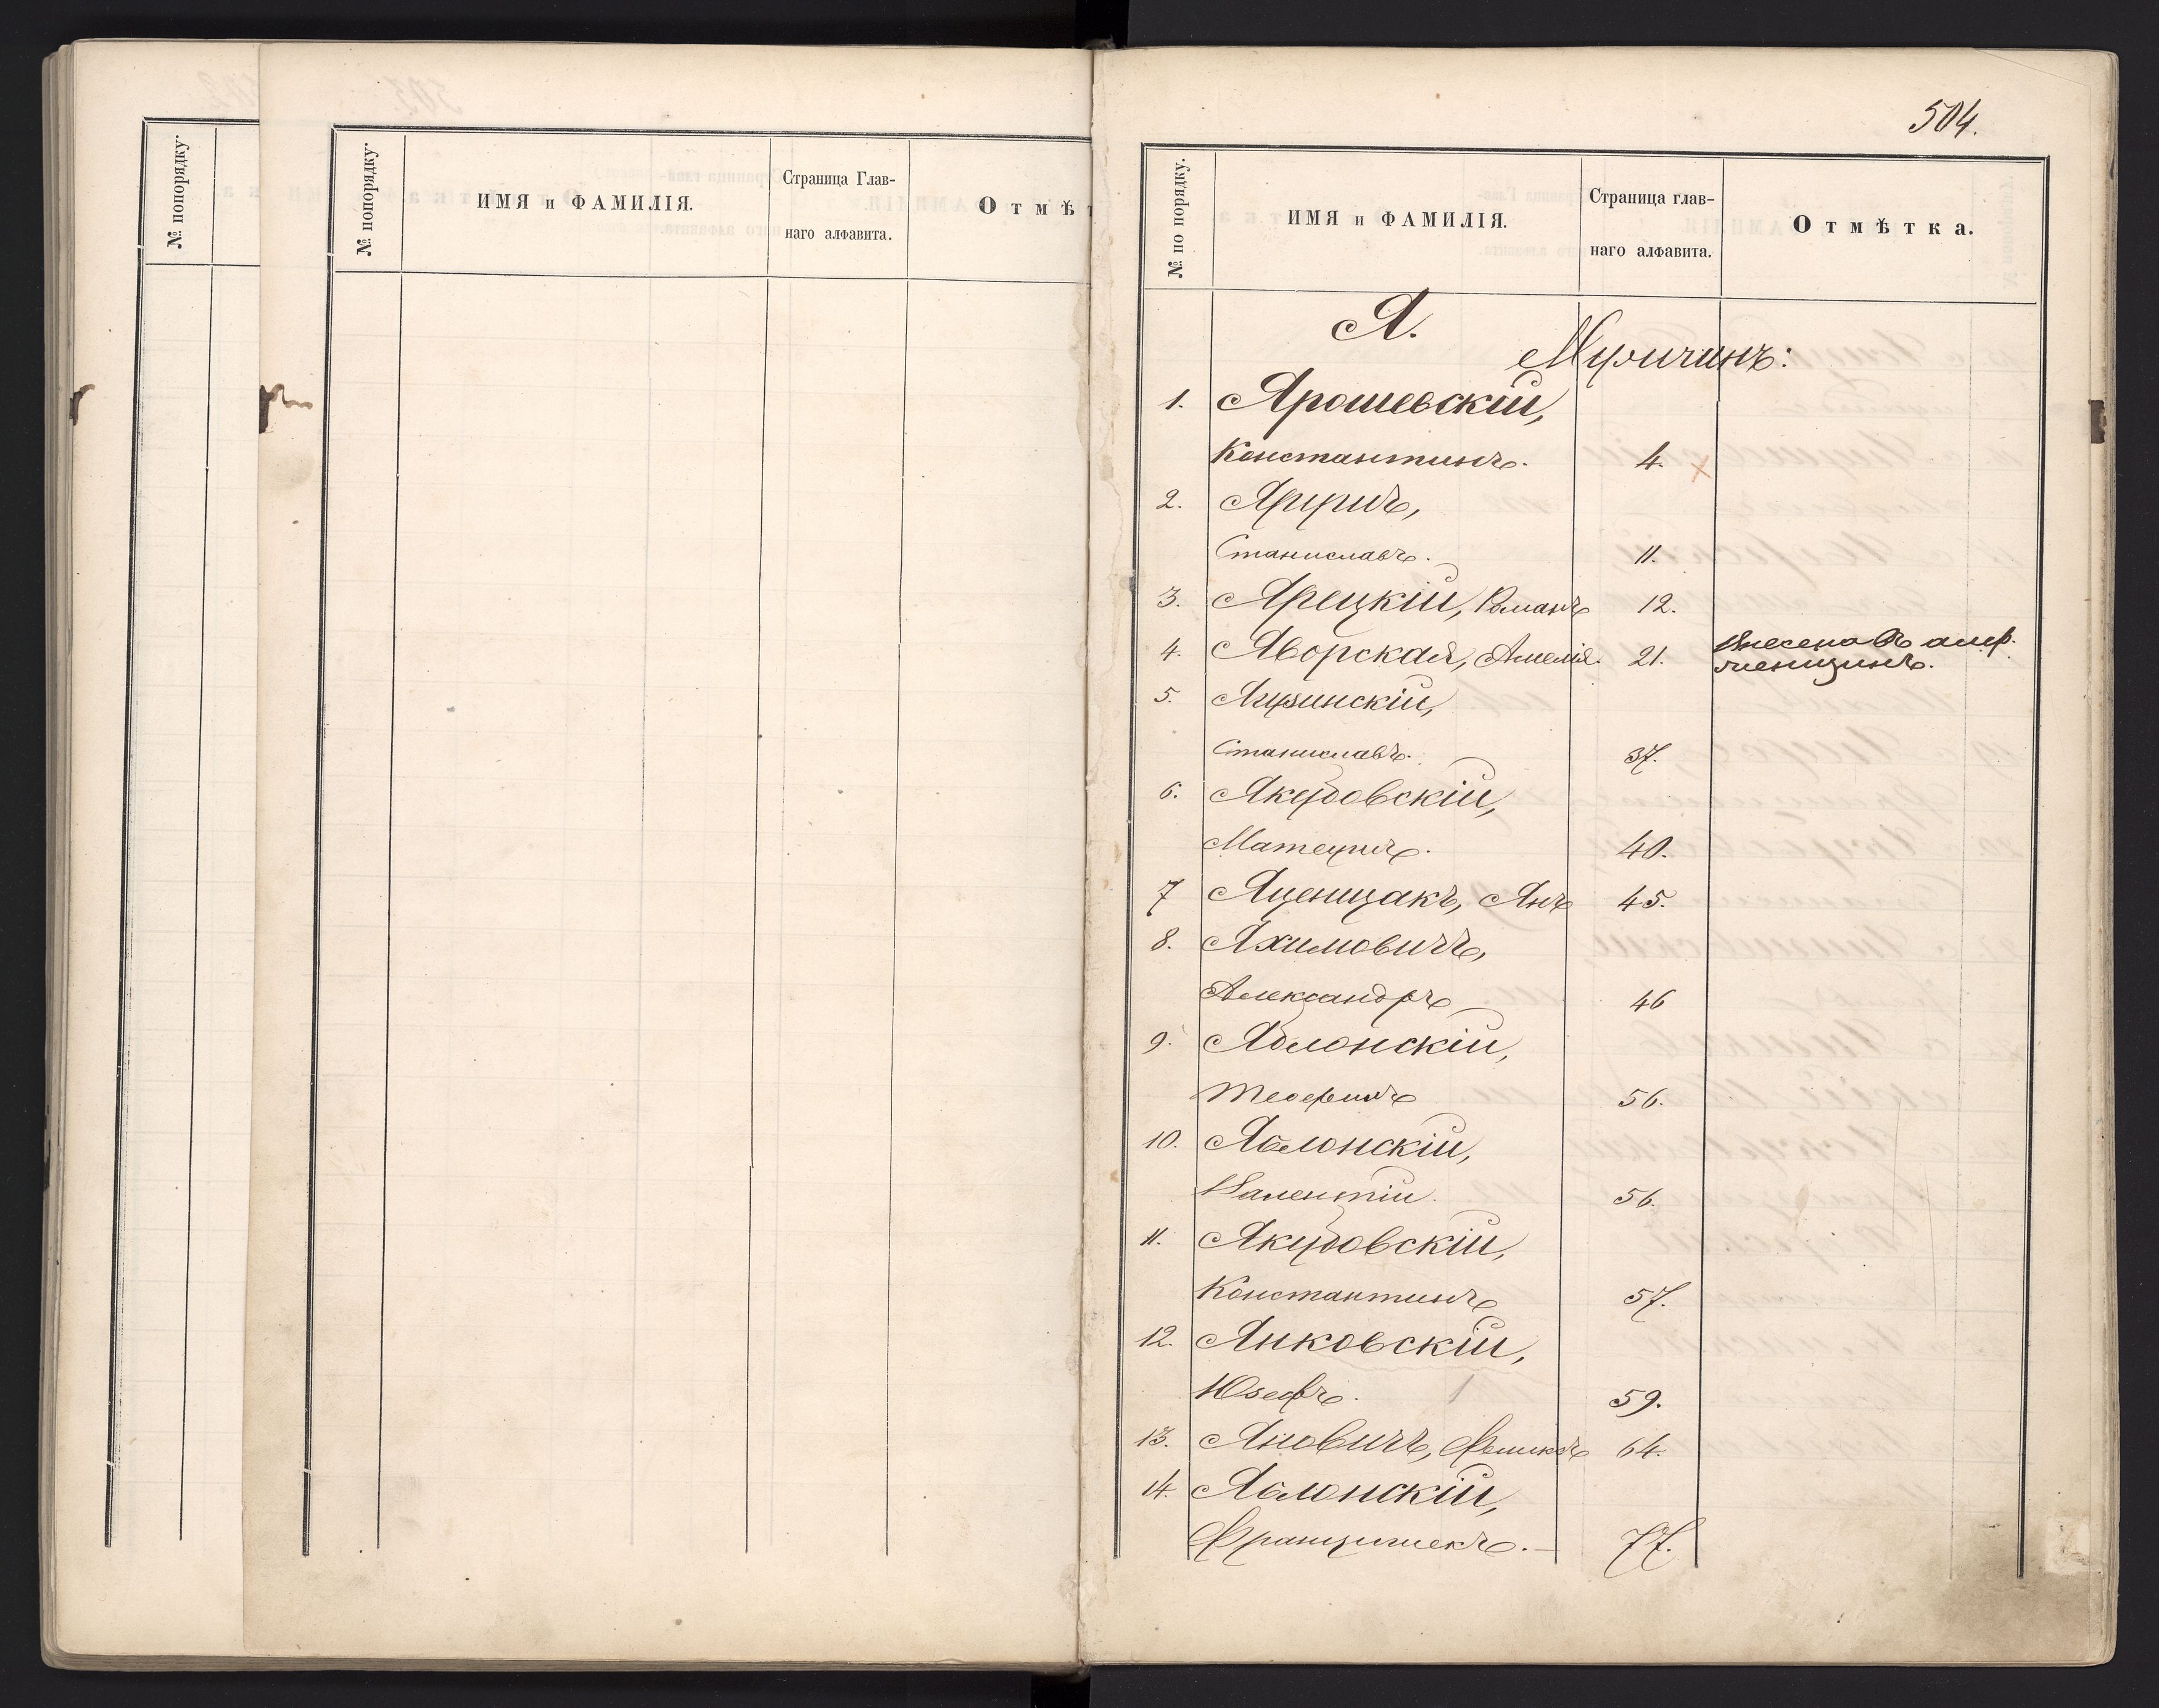 № попорядку.
№ попорядку.
ИМЯ и ФАМИЛІЯ.
Страница Глав-
наго алфавита.
Отмѣт
504.
№ по порядку.
ИМЯ и ФАМИЛІЯ.
Страница глав-
наго алфавита.
Отмѣтка.
Я.
Мужчинъ:
1. Ярошевскій,
Константинъ. 4.
2.
Станиславъ. 11.
3. Ярецкій, Романъ 12.
4. Яворская, Амелія. 21. Внесена въ алф.
женщинъ.
5.
Станиславъ. 37.
6. Якубовскій,
Матеушъ. 40.
7 Яценцакъ, Янъ 45.
8. Яхимовичъ,
Александръ 46
9. Яблонскій,
Теофилъ 56.
10. Яблонскій,
Валентій. 56.
11. Якубовскій,
Константинъ 57.
12. Янковскій,
Юзефъ. 59.
13. Яновичъ, Феликсъ 64.
14. Яблонскій,
Францишекъ. 77.